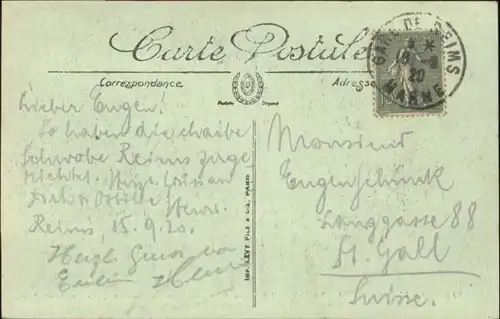 Carte Postale
Correspondance
Adresse
GARE DE REIMS
20
MARNE
Lieber Eugen!
So haben die chaibe
Schwobe Reims zuge
richtet.
Reims, 15.9.20.
Herzl. Gruss von
IMP. LÉVY FILS & CIE, PARIS
Monsieur
Eugen Schünk
Langgasse 88
St. Gall
Suisse.